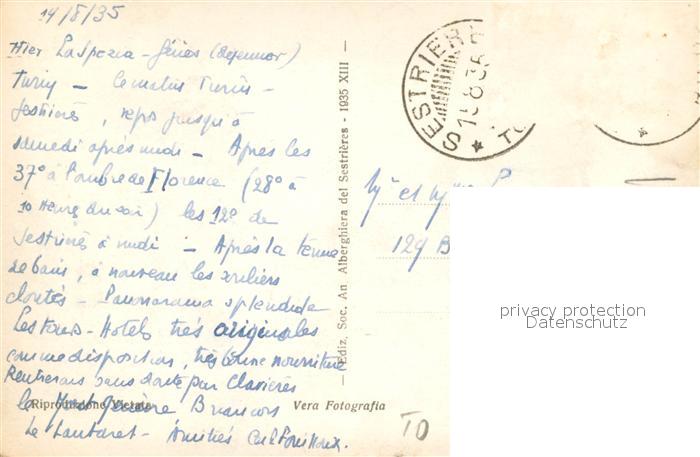 14/8/35
Hier La Spezia - Gênes (déjeuner)
Turin - ce matin Turin -
Sestrières, repos jusqu'à
samedi après midi - Après les
37° à l'ombre de Florence (28° à
10 heures du soir) les 12° de
Sestrières à midi - Après la tenue
de bain, à nouveau les souliers
cloutés - Panorama splendide
Les tours - Hotels très originales
comme disposition, très bonne nourriture
Rentrerons sans doute par Clavières
le Mont Genèvre Briançon
Le Lautaret - Amitiés
Riproduzione Vietata
Vera Fotografia
Ediz. Soc. An. Alberghiera del Sestrières - 1935 XIII
SESTRIER
15.8.35
TO
Mr et Mme P
129 B
privacy protection
Datenschutz
TO